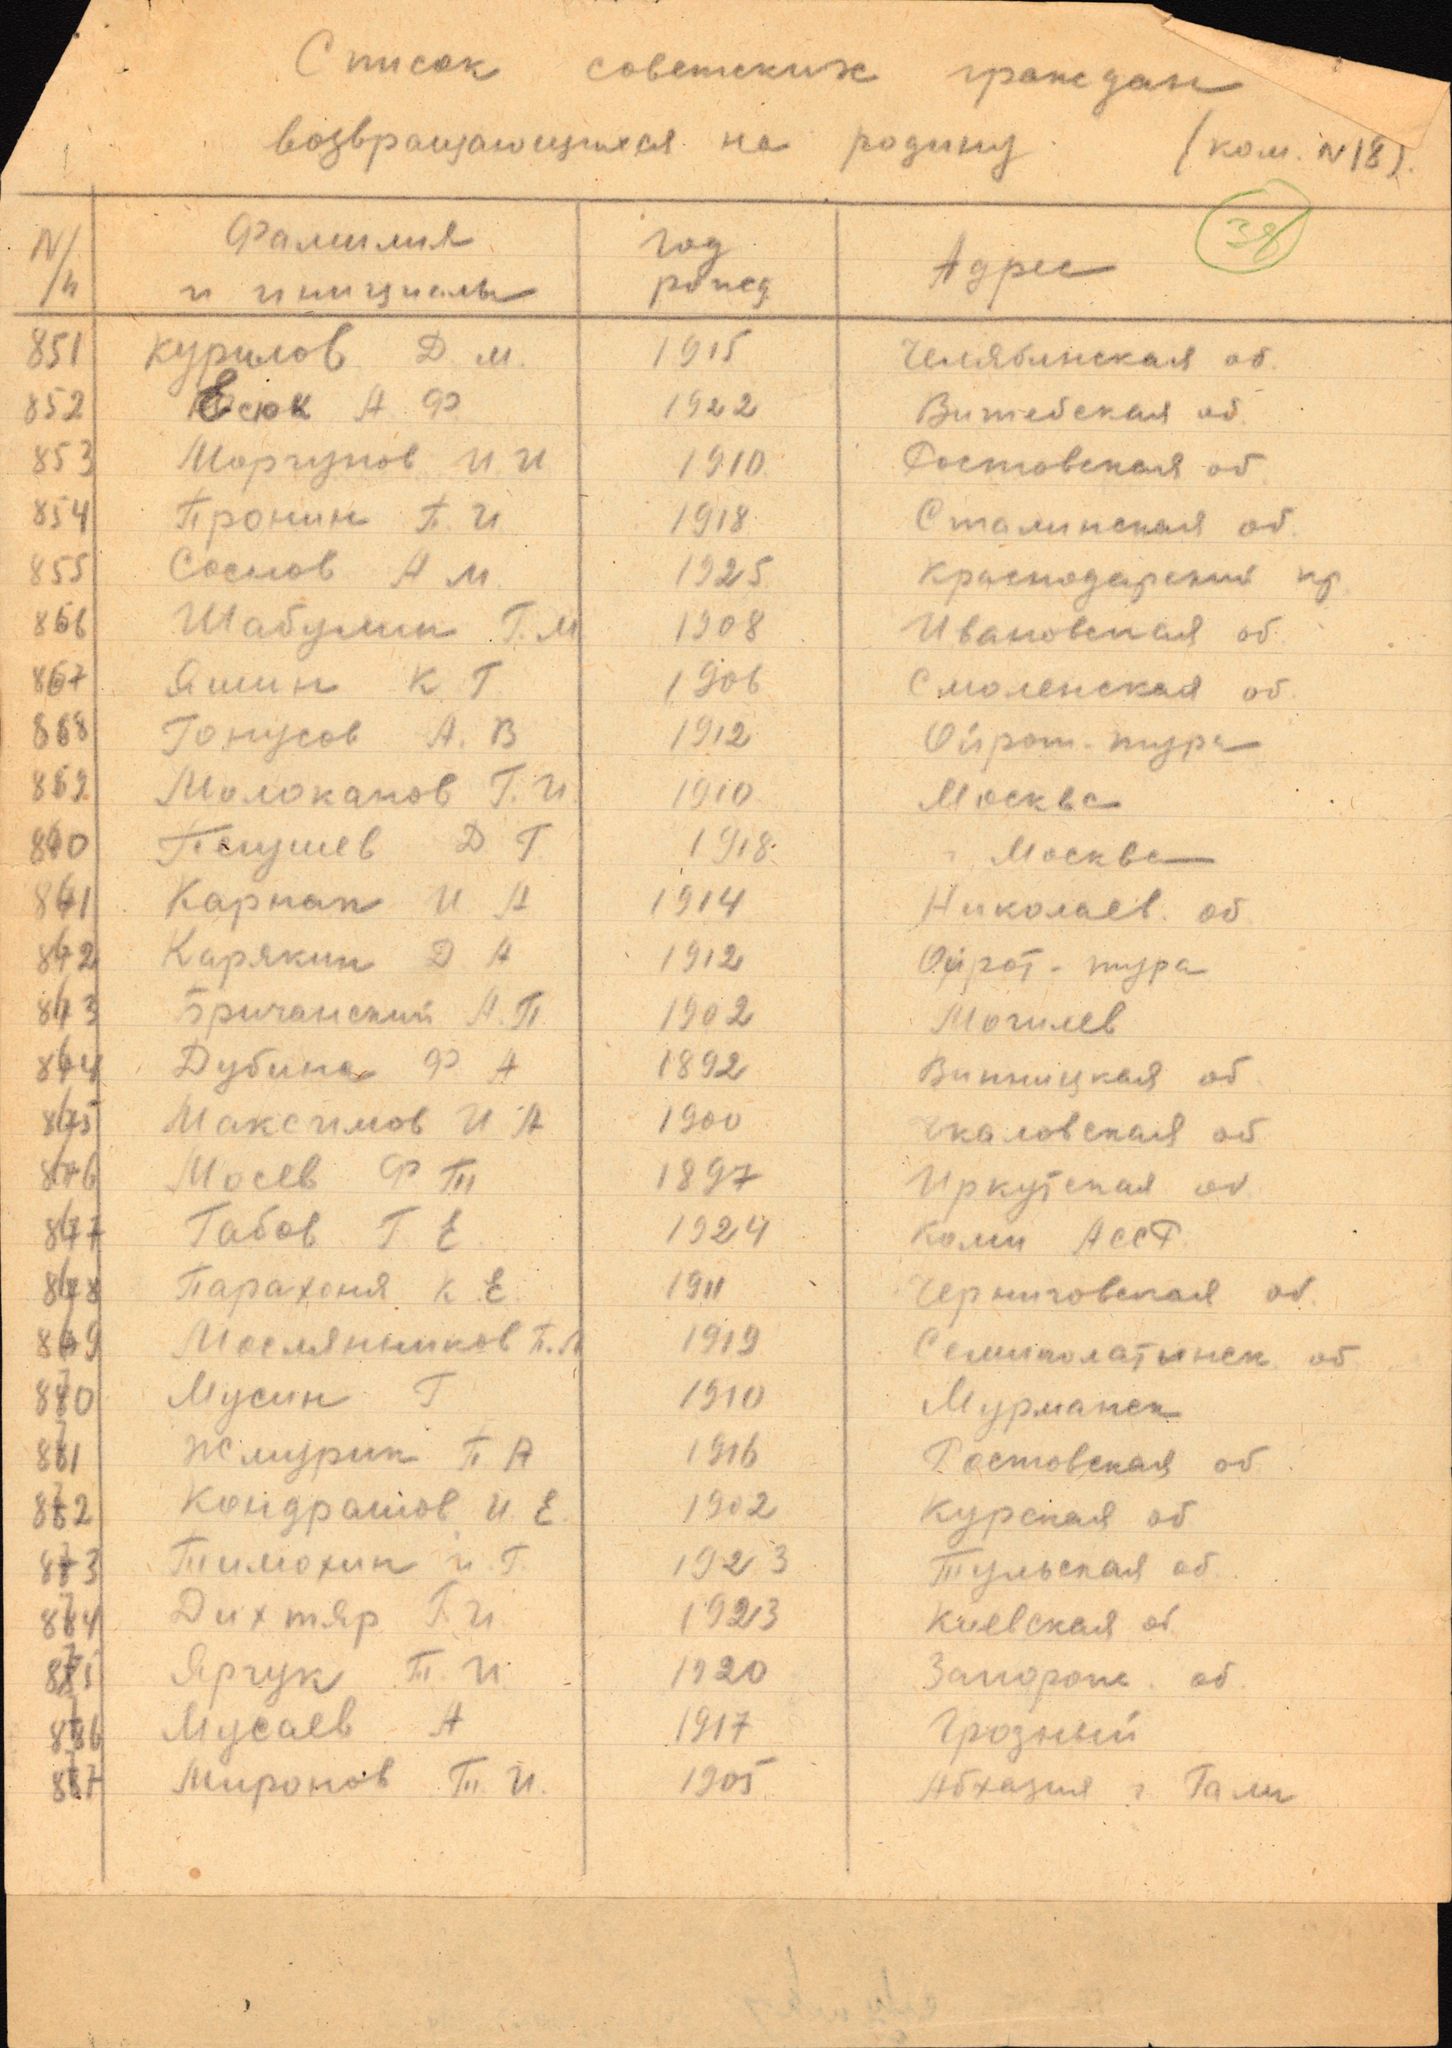 Список советских граждан
возвращающихся на родину (ком. N 18).
38
N/п Фамилия и инициалы год рожд Адрес
851 Курилов Д. М. 1915 Челябинская об.
852 Есюк А Ф 1922 Витебская об.
853 Моргунов И И 1910 Ростовская об.
854 Пронин П. И 1918 Сталинская об.
855 Соснов А М. 1925 Краснодарский кр.
856 Шабулин Г. М 1908 Ивановская об.
857 Яшин К Г 1906 Смоленская об.
858 Гонусов А. В 1912 Ойрот-тура
859 Молоканов Г. И. 1910 Москва
860 Д Г 1918 г Москва
861 Карпан И А 1914 Николаев. об.
862 Карякин Д А 1912 Ойрот-тура
863 Бричанский А. П. 1902 Могилев
864 Дубина Ф А 1892 Винницкая об.
865 Максимов И А 1900 Чкаловская об
866 Мосев Ф Т 1897 Иркутская об
867 Габов Г Е 1924 Коми АССР.
868 Парахоня К. Е. 1911 Черниговская об.
869 Маслянников П. 1919 Семиполатинск об
870 Мусин Г 1910 Мурманск
871 Жмурин П А 1916 Ростовская об
872 Кондрашов И. Е. 1902 Курская об
873 Тимохин И. Г. 1923 Тульская об.
874 Дихтяр Г. И. 1923 Киевская об.
875 Ярчук Т. И 1920 Запорож. об.
876 Мусаев А 1917 Грозный
877 Миронов Т. И. 1905 Абхазия г. Гали